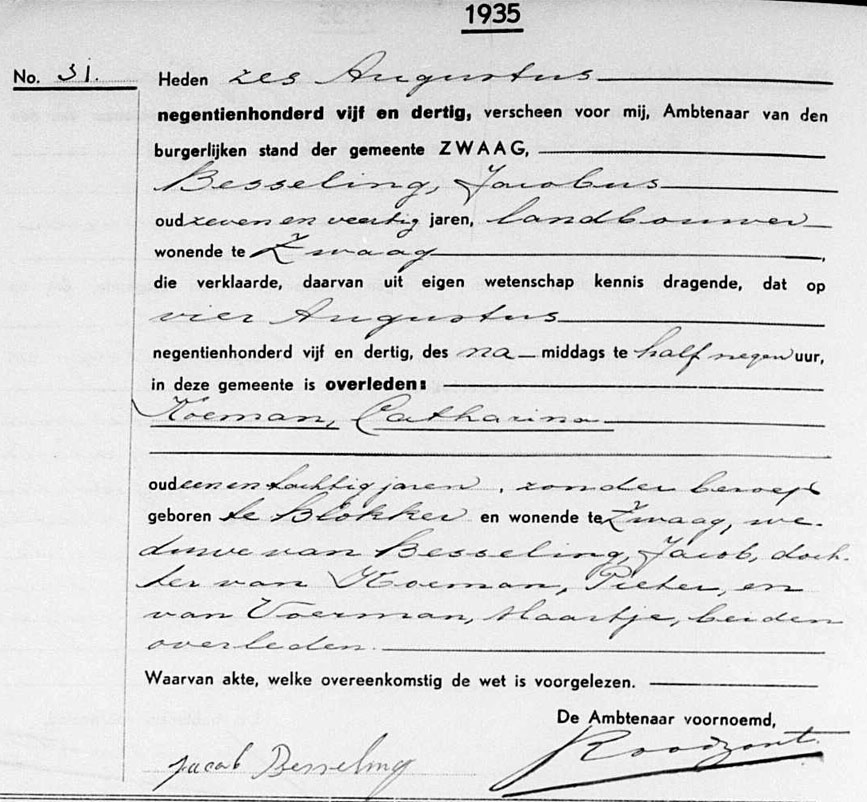 1935
No. 31. Heden zes Augustus
negentienhonderd vijf en dertig, verscheen voor mij, Ambtenaar van den
burgerlijken stand der gemeente ZWAAG,
Besseling, Jacobus
oud zeven en veertig jaren, landbouwer
wonende te Zwaag,
die verklaarde, daarvan uit eigen wetenschap kennis dragende, dat op
vier Augustus
negentienhonderd vijf en dertig, des na middags te half negen uur,
in deze gemeente is overleden:
Koeman, Catharina
oud een en tachtig jaren, zonder beroep
geboren te Blokker en wonende te Zwaag, we-
duwe van Besseling, Jacob, doch-
ter van Koeman, Pieter, en
van Voerman, Maartje, beiden
overleden.
Waarvan akte, welke overeenkomstig de wet is voorgelezen.
De Ambtenaar voornoemd,
Jacob Besseling